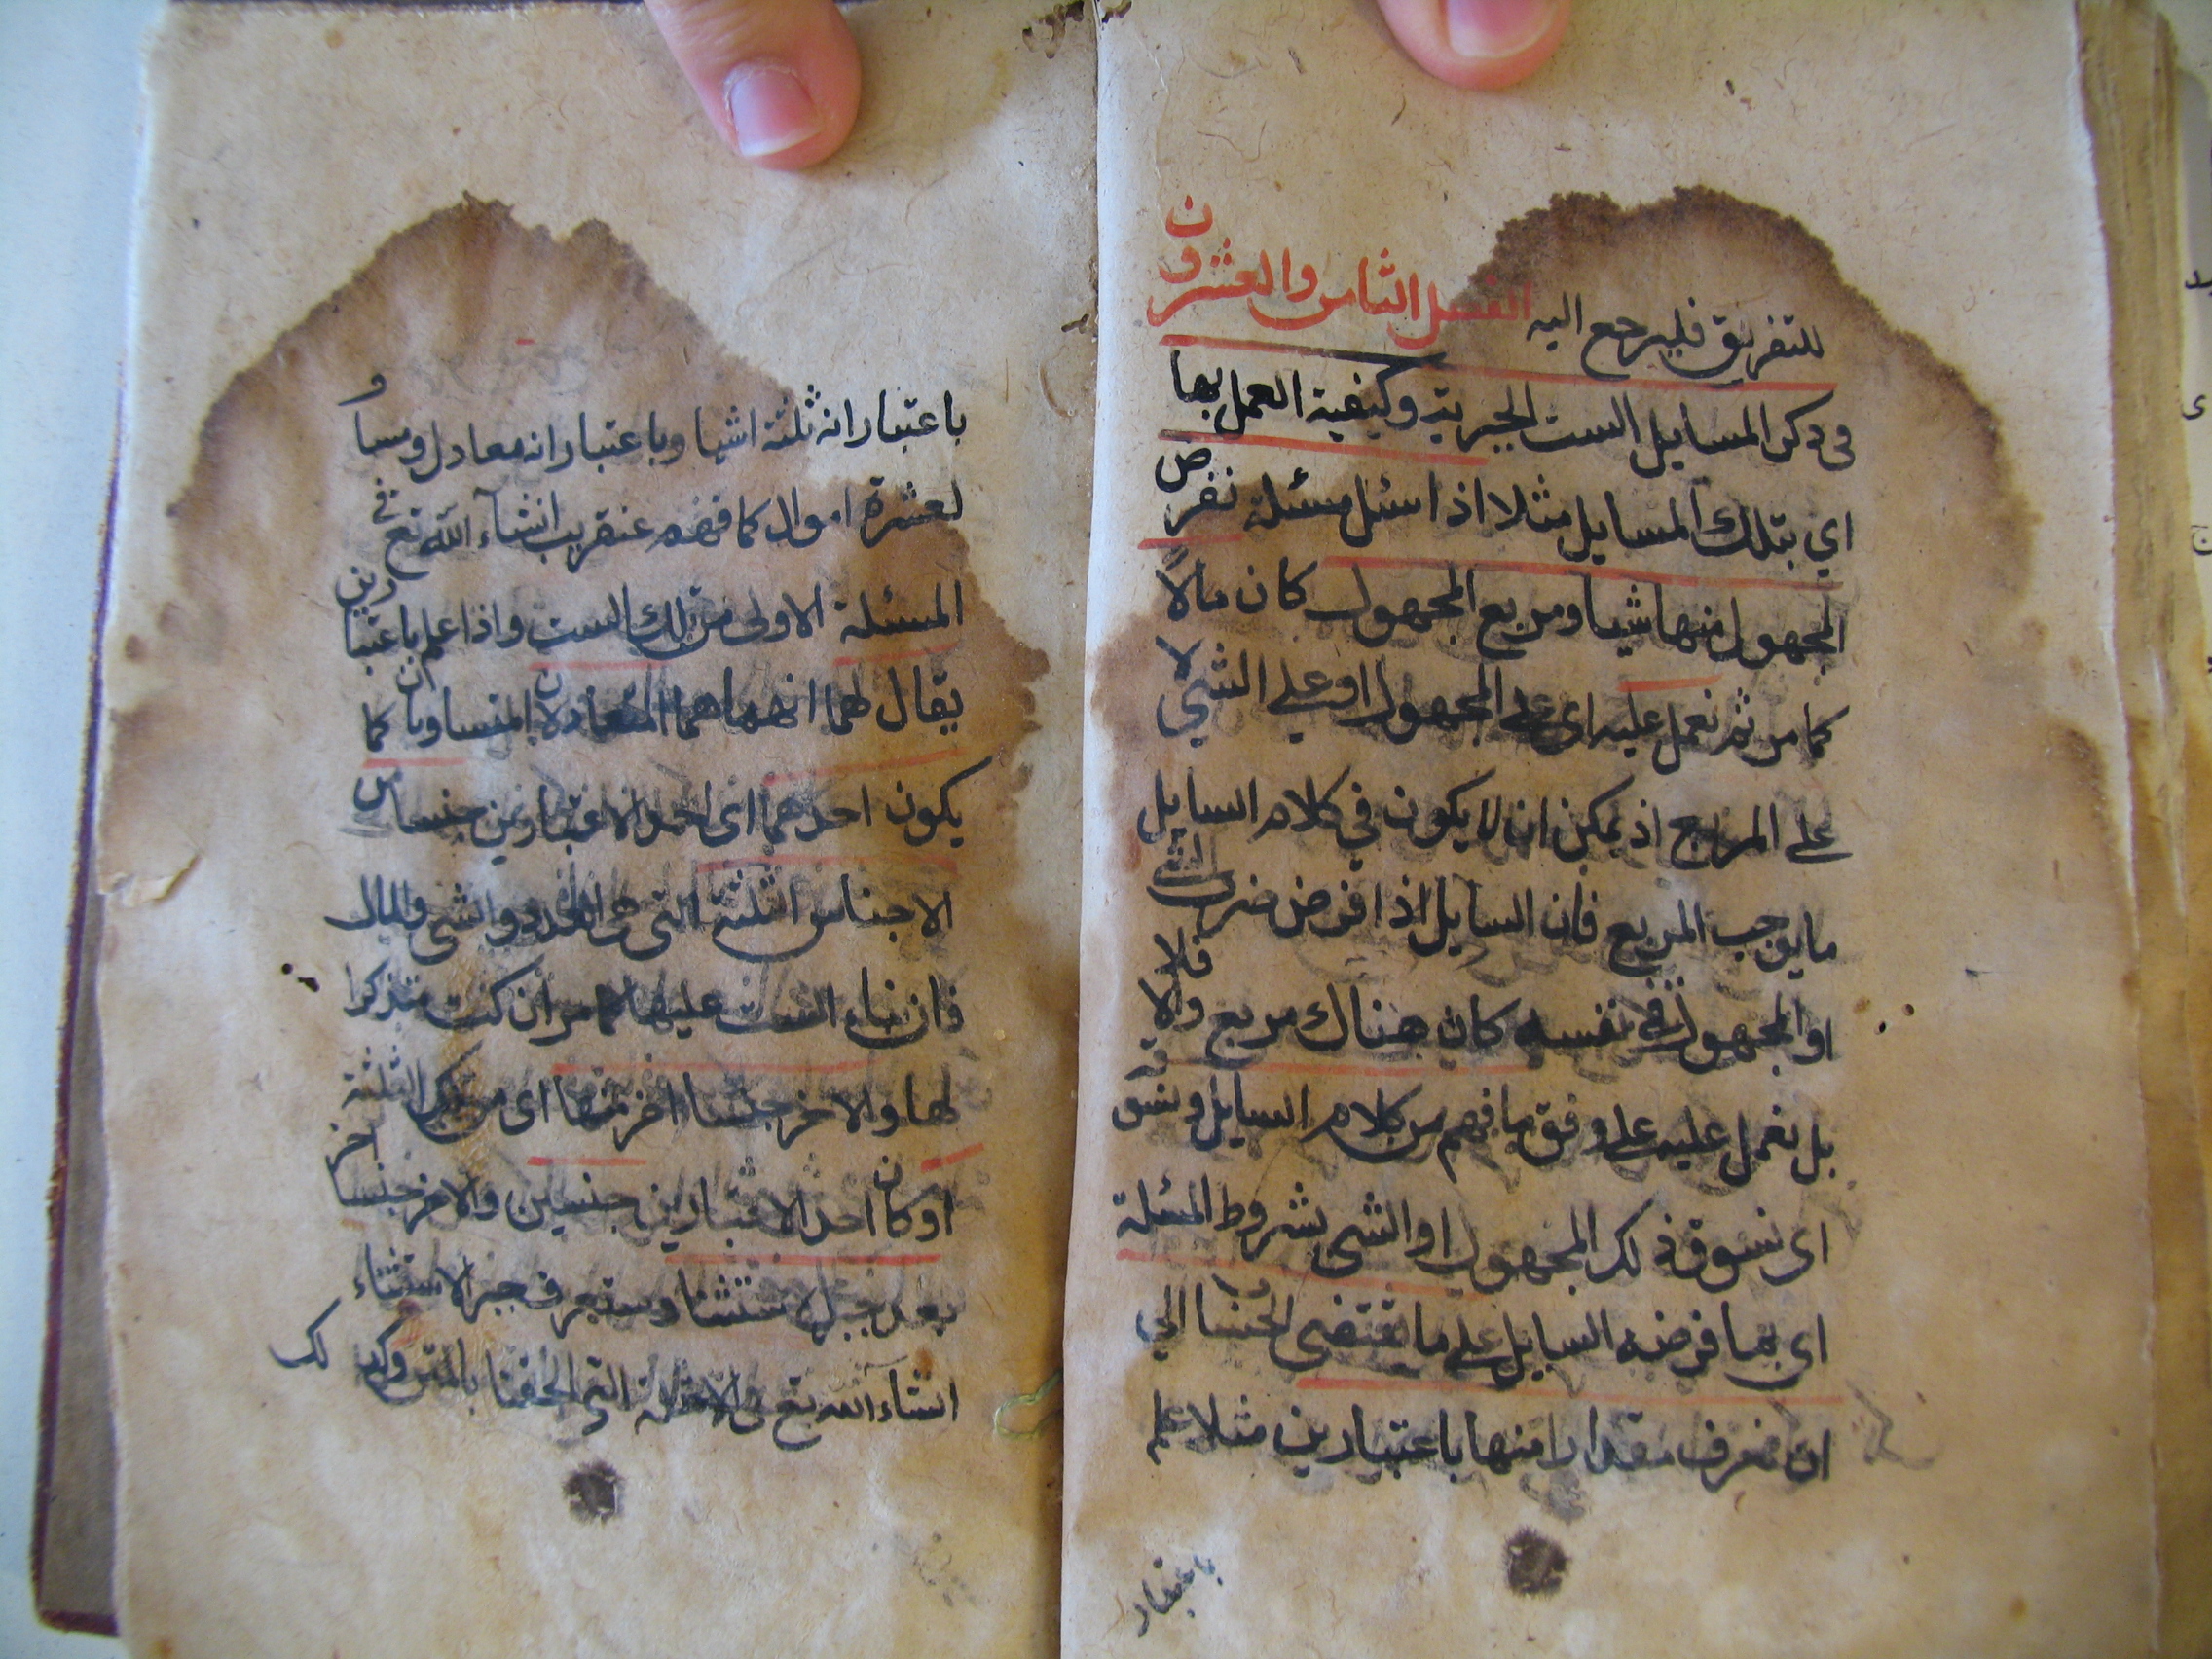 للتفريق فليرجع اليه الفصل الثامن والعشرون
فى ذكر المسايل الست الجبرية وكيفية العمل بها
اي بتلك المسايل مثلا اذا سئل مسئلة نفرض
المجهول منها شيا ومربع المجهول كان مالاً
كما مر ثم نعمل عليه اى على المجهول او على الشي لا
على المربع اذ يمكن ان لا يكون في كلام السايل
ما يوجب المربع فان السايل اذا فرض ضرب الشي
او المجهول في نفسه كان هناك مربع والا فلا
بل نعمل عليه على وفق ما فهم من كلام السايل
اى نسوق ذلك المجهول او الشى بشروط المسئلة
اى بما فرضه السايل على ما تقتضى الحساب الي
ان نعرف مقدارا منها باعتبارين مثلا علم
باعتبار
باعتبار انه ثلثة اشيا وباعتبار انه معادل ومساو
لعشرة اموال كما فهم عنقريب انشآء الله تع في
المسئلة الاولى من تلك الست واذا علم باعتبارين
يقال لهما انهما هما المتعادلان المتساويان كما
يكون احدهما اى احد الاعتبارين جنسا من
الاجناس الثلثة التى هى العدد والشى والمال
فان بناء الست عليها كما مر ان كنت متذكرا
لها والاخر جنسا اخر منها اى من تلك الثلثة
او كان احد الاعتبارين جنسين والاخر جنسا اخر
بعد جبر الاستثنا وستعرف جبر الاستثناء
انشآء الله تع فى الامثلة التى الحقنا بالمتن وكذلك